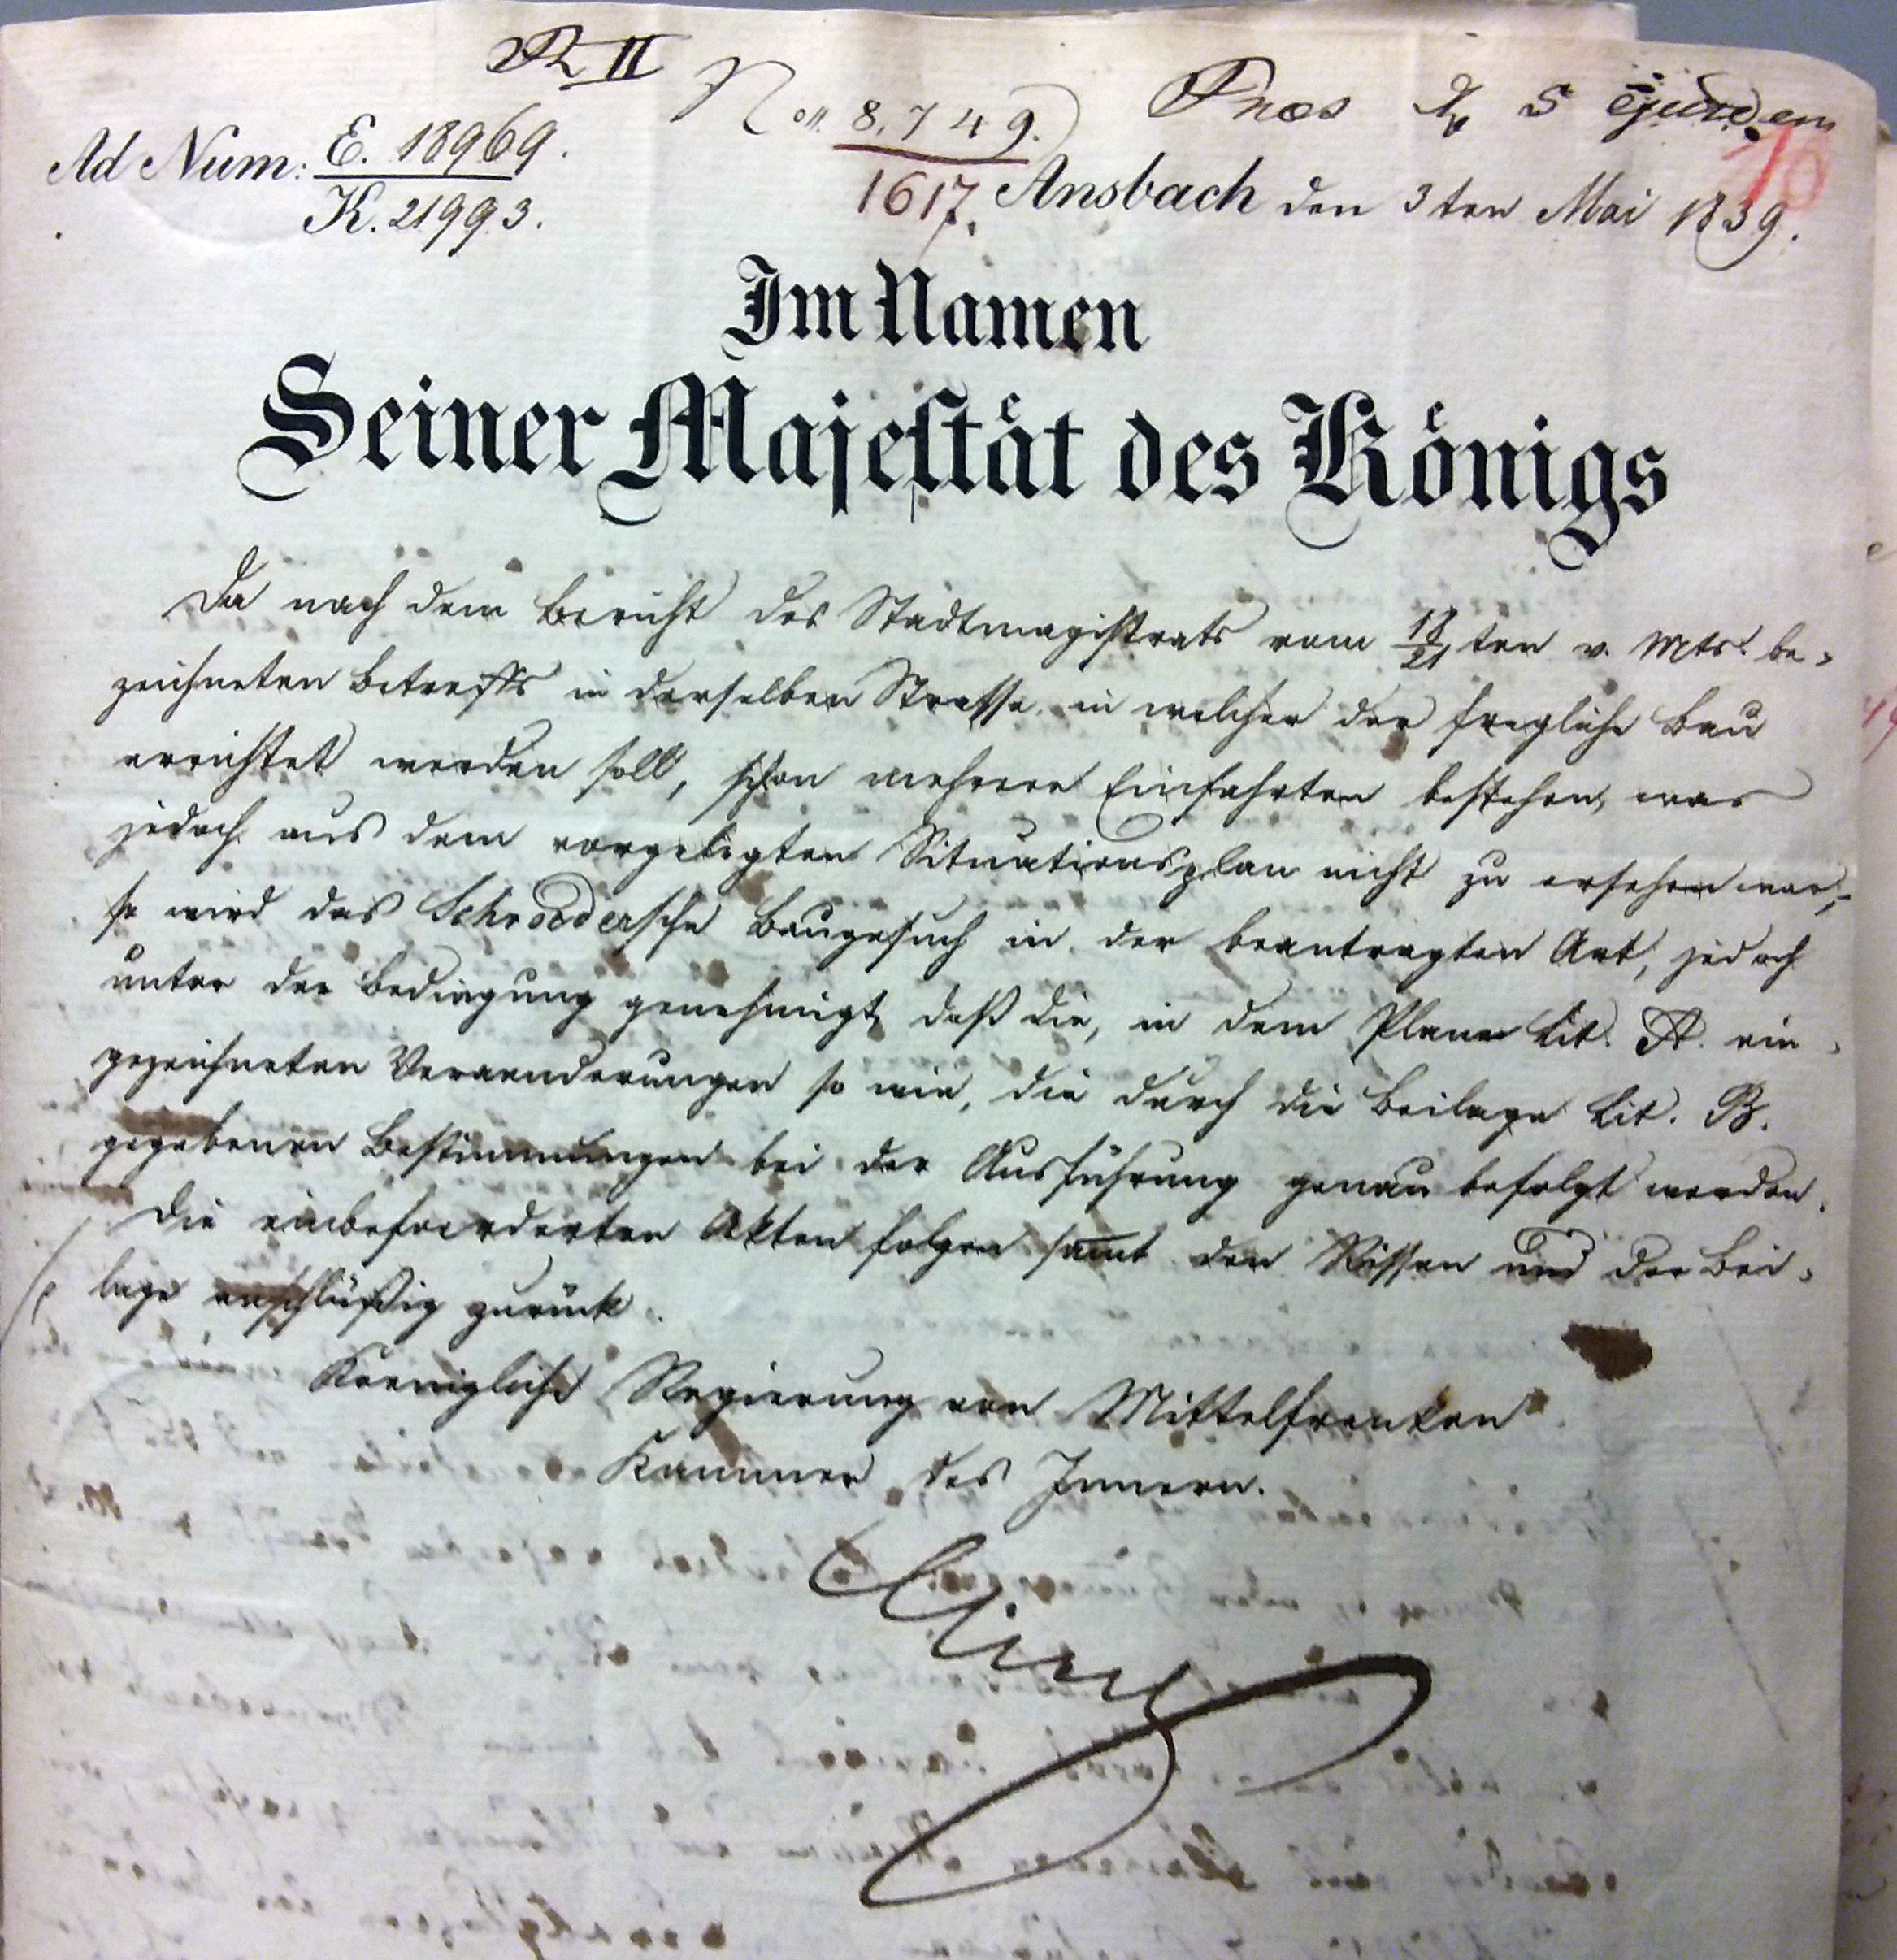 R II
Non. 8,749. Præs d. 5 ejusdem
Ad Num: E. 18969.
K. 21993.
1617. Ansbach den 3ten Mai 1839.
Im Namen
Seiner Majestät des Königs
Da nach dem Bericht des Stadtmagistrats vom 18/21ten v. Mts. be-
zeichneten Betreffs in derselben Strasse, in welcher der fragliche Bau
errichtet werden soll, schon mehrere Einfahrten bestehen, was
jedoch aus dem vorgelegten Situationsplan nicht zu ersehen war,
so wird das Schroedersche Baugesuch in der beantragten Art, jedoch
unter der Bedingung genehmigt, daß die, in dem Plane Lit. A. ein-
gezeichneten Veraenderungen so wie, die durch die Beilage Lit. B.
gegebenen Bestimmungen bei der Ausführung genau befolgt werden.
Die einbefoerderten Akten folgen samt den Rissen und der Bei-
lage anschlüßig zurück.
Koenigliche Regierung von Mittelfranken
Kammer des Innern.